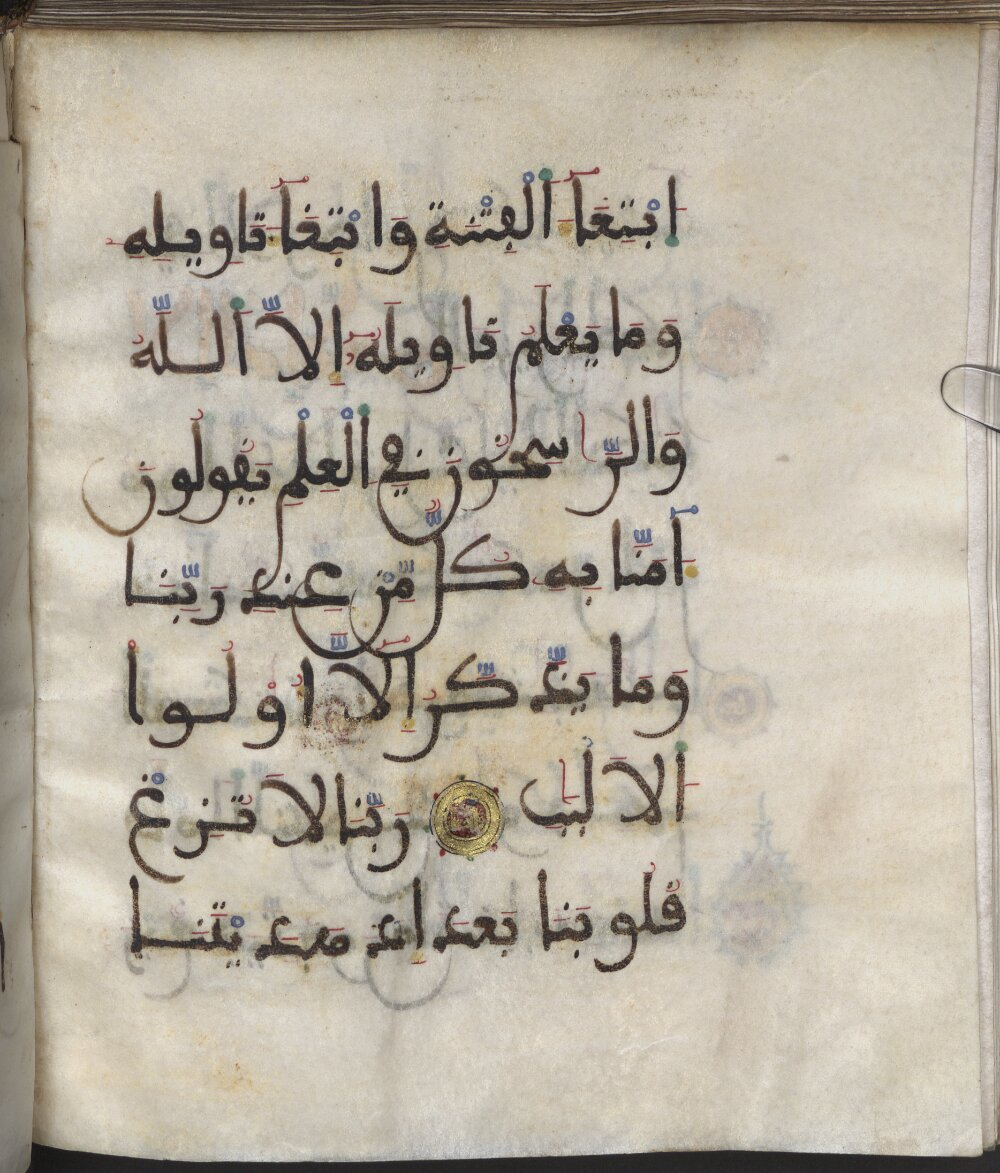 ابْتِغَآءَ الْفِتْنَةِ وَابْتِغَآءَ تَاوِيلِهِ
وَمَا يَعْلَمُ تَاوِيلَهُ إِلَّا اَللَّهُ
وَالرَّاسِخُونَ فِي الْعِلْمِ يَقُولُونَ
ءَامَنَّا بِهِ كُلٌّ مِّنْ عِندِ رَبِّنَا
وَمَا يَذَّكَّرُ إِلَّآ أُوْلُوا
الَالْبَٰبِ رَبَّنَا لَا تُزِغْ
قُلُوبَنَا بَعْدَ إِذْ هَدَيْتَنَا